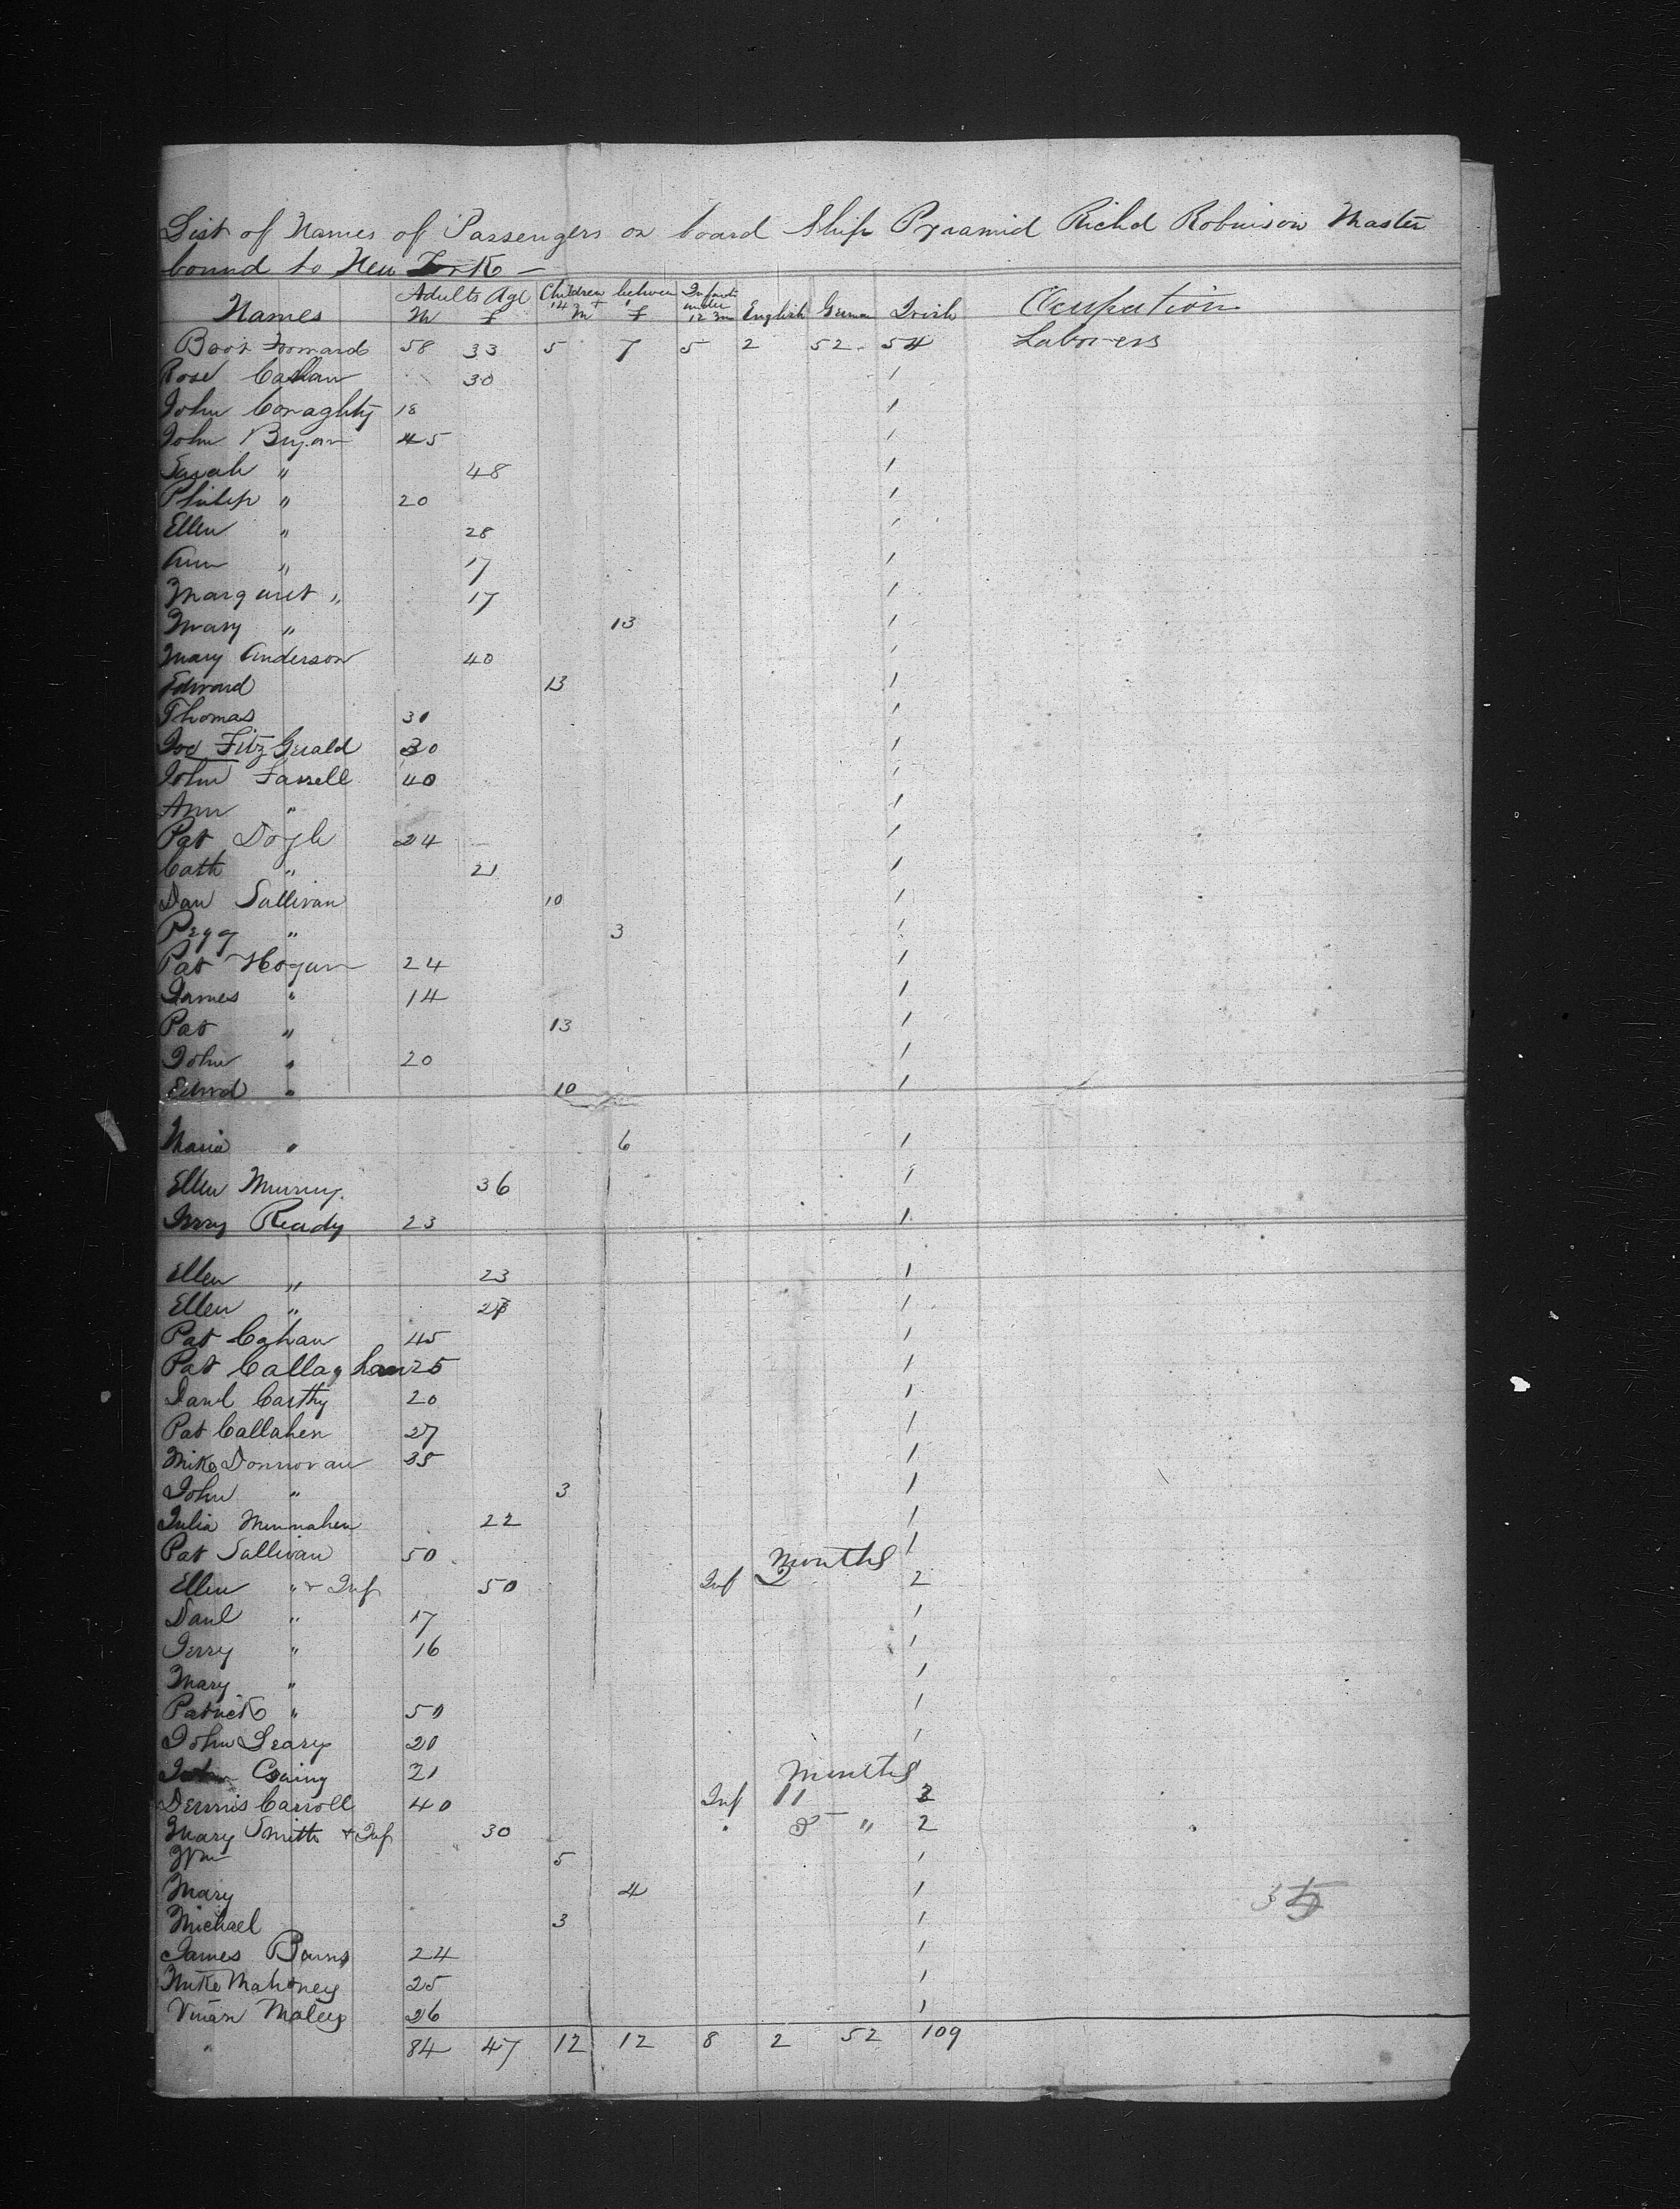 List of Names of Passengers on board Ship Pyramid Richd Robinson Master
bound to New York —
Names Adults Age M f Children between 14 + 1 M f Infants under 12 English German Irish Occupation
Forward 58 33 5 7 5 2 52 54 Laborers
Rose 30 1
John Conaghty 18 1
John Bryan 45 1
Sarah " 48 1
Philip " 20 1
Ellen " 28 1
Ann " 17 1
Margaret " 17 1
Mary " 13 1
Mary Anderson 40 1
Edward 13 1
Thomas 30 1
FitzGerald 30 1
John Farrell 40 1
Ann " 1
Pat Doyle 24 1
Cath " 21 1
Dan Sullivan 10 1
Pegg " 3 1
Pat Hogan 24 1
James " 14 1
Pat " 13 1
John " 20 1
Edwd " 10 1
Maria " 6 1
Ellen Murray 36 1
Jerry Ready 23 1
Ellen " 23 1
Ellen " 1
Pat 45 1
Pat Callaghan 25 1
Danl Carthy 20 1
Pat Callahen 27 1
Mike Donnovan 35 1
John " 3 1
Julia Minnahen 22 1
Pat Sullivan 50 1
Ellen " + Inf 50 Inf 2 months 2
Danl " 17 1
Jerry " 16 1
Mary " 1
Patrick " 50 1
John Leary 20 1
21 months
Dennis Carroll 40 Inf 11 2
Mary Smith + Inf 30 " 3 " 2
Wm 5 1
Mary 4 1
Michael 3 1
James Barns 24 1
Mike Mahoney 25 1
Maley 26 1
84 47 12 12 8 2 52 109
35